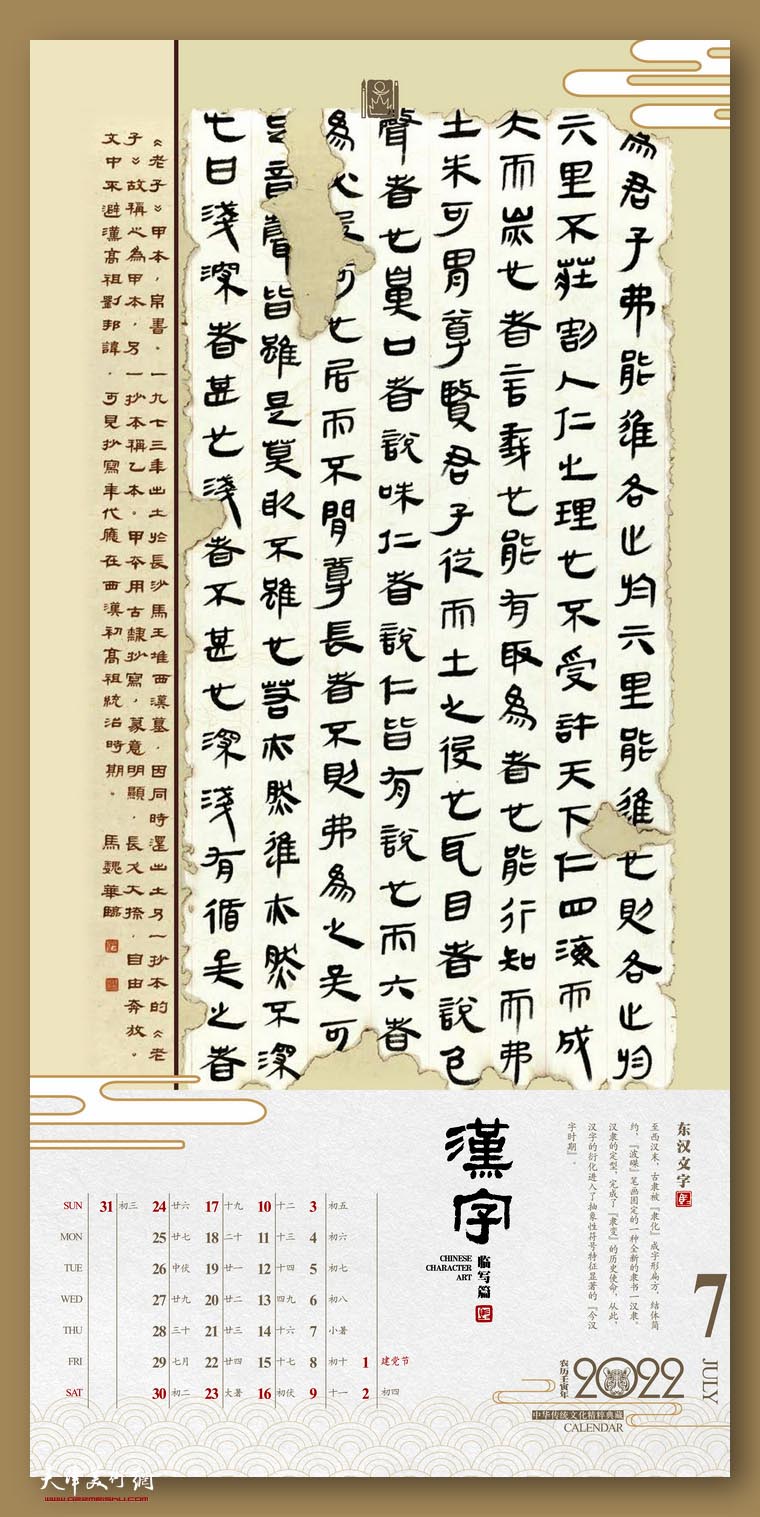 為君子弗能進各止於六里能進也則各止於
六里不莊割人仁之理也不受許天下仁四海而成
大而炭也者言義也能有取為者也能行知而弗
士朱可胃尊賢君子從而士之役也耳目者說色
聲者也鼻口者說味仁者說仁皆有說也而六者
為心役何也居而不閒尊長者不則弗為之矣可
音聲皆雖是莫敢不雖也若亦然進亦然不深
七曰淺深者甚也淺者不甚也深淺有循矣之者
《老子》甲本，帛書。一九七三年出土於長沙馬王堆西漢墓，因同時還出土另一抄本的《老
子》故稱之為甲本，另一抄本稱乙本。甲本用古隸抄寫，篆意明顯，長大捺，自由奔放。
文中不避漢高祖劉邦諱，可見抄寫年代應在西漢初高祖統治時期。 馬魏華臨
漢字
临写篇
CHINESE
CHARACTER
ART
东汉文字
至西汉末，古隶被『隶化』成字形扁方、结体简
约、『波磔』笔画固定的一种全新的隶书—汉隶。
汉隶的定型，完成了『隶变』的历史使命，从此，
汉字的衍化进入了抽象性符号特征显著的『今汉
字时期』。
7
JULY
农历壬寅年
2022
中华传统文化精粹典藏
CALENDAR
SUN 31 初三 24 廿六 17 十九 10 十二 3 初五
MON 25 廿七 18 二十 11 十三 4 初六
TUE 26 中伏 19 廿一 12 十四 5 初七
WED 27 廿九 20 廿二 13 四九 6 初八
THU 28 三十 21 廿三 14 十六 7 小暑
FRI 29 七月 22 廿四 15 十七 8 初十 1 建党节
SAT 30 初二 23 大暑 16 初伏 9 十一 2 初四
天津美術網
www.022meishu.com